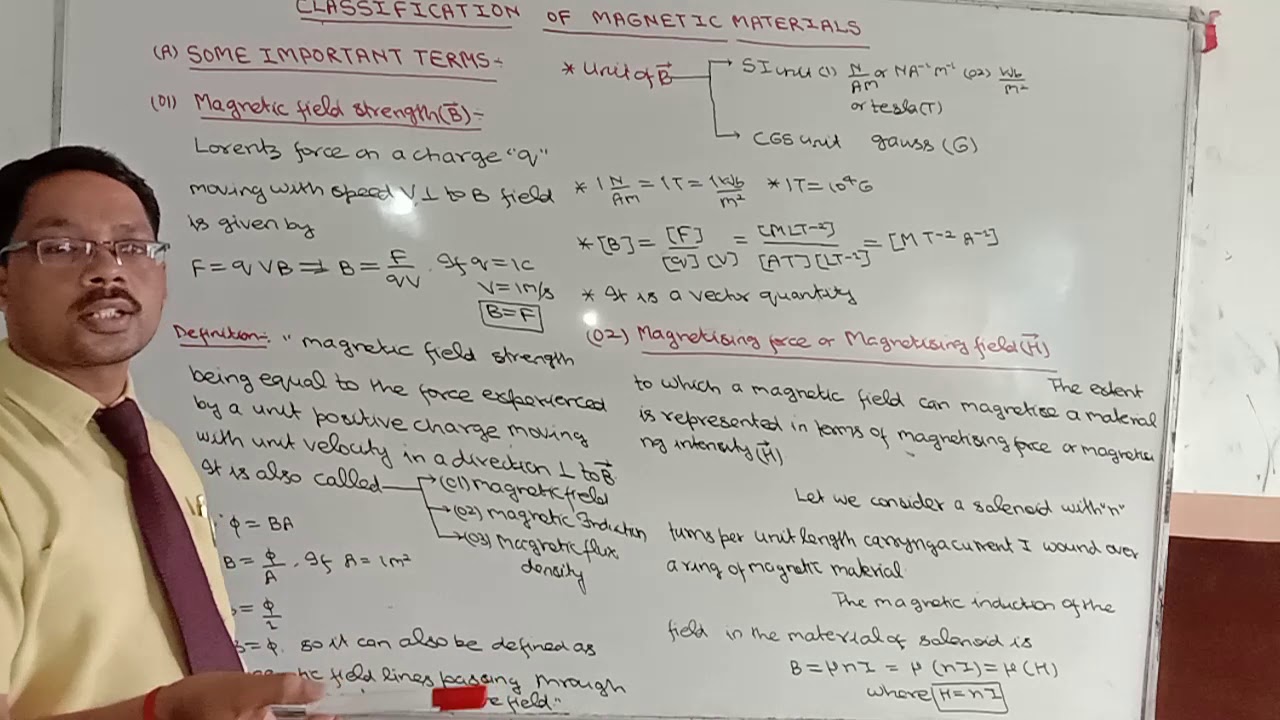 CLASSIFICATION OF MAGNETIC MATERIALS
(A) SOME IMPORTANT TERMS:-
(01) Magnetic field strength(B⃗):-
Lorentz force on a charge "q"
moving with speed V ⊥ to B field
is given by
F = qVB ⇒ B = F/qV . If q = 1C
V = 1m/s
B = F
Definition:- "magnetic field strength
being equal to the force experienced
by a unit positive charge moving
with unit velocity in a direction ⊥ to B⃗
It is also called → (01) magnetic field
→ (02) magnetic Induction
→ (03) Magnetic flux
density
φ = BA
B = φ/A . If A = 1m²
= φ/1
B = φ. so it can also be defined as
field lines passing through
field"
* Unit of B⃗ → SI unit (1) N/AM or NA⁻¹m⁻¹ (02) Wb/m²
or tesla(T)
→ CGS unit gauss (G)
* 1 N/Am = 1T = 1Wb/m² * 1T = 10⁴G
* [B] = [F]/[q][V] = [MLT⁻²]/[AT][LT⁻²] = [M T⁻² A⁻¹]
* It is a vector quantity
(02) Magnetising force or Magnetising field(H⃗)
The extent
to which a magnetic field can magnetise a material
is represented in terms of magnetising force or magnetisi
ng intensity(H⃗)
Let we consider a solenoid with "n"
turns per unit length carrying a current I wound over
a ring of magnetic material
The magnetic induction of the
field in the material of solenoid is
B = μnI = μ(nI) = μ(H)
where H = nI